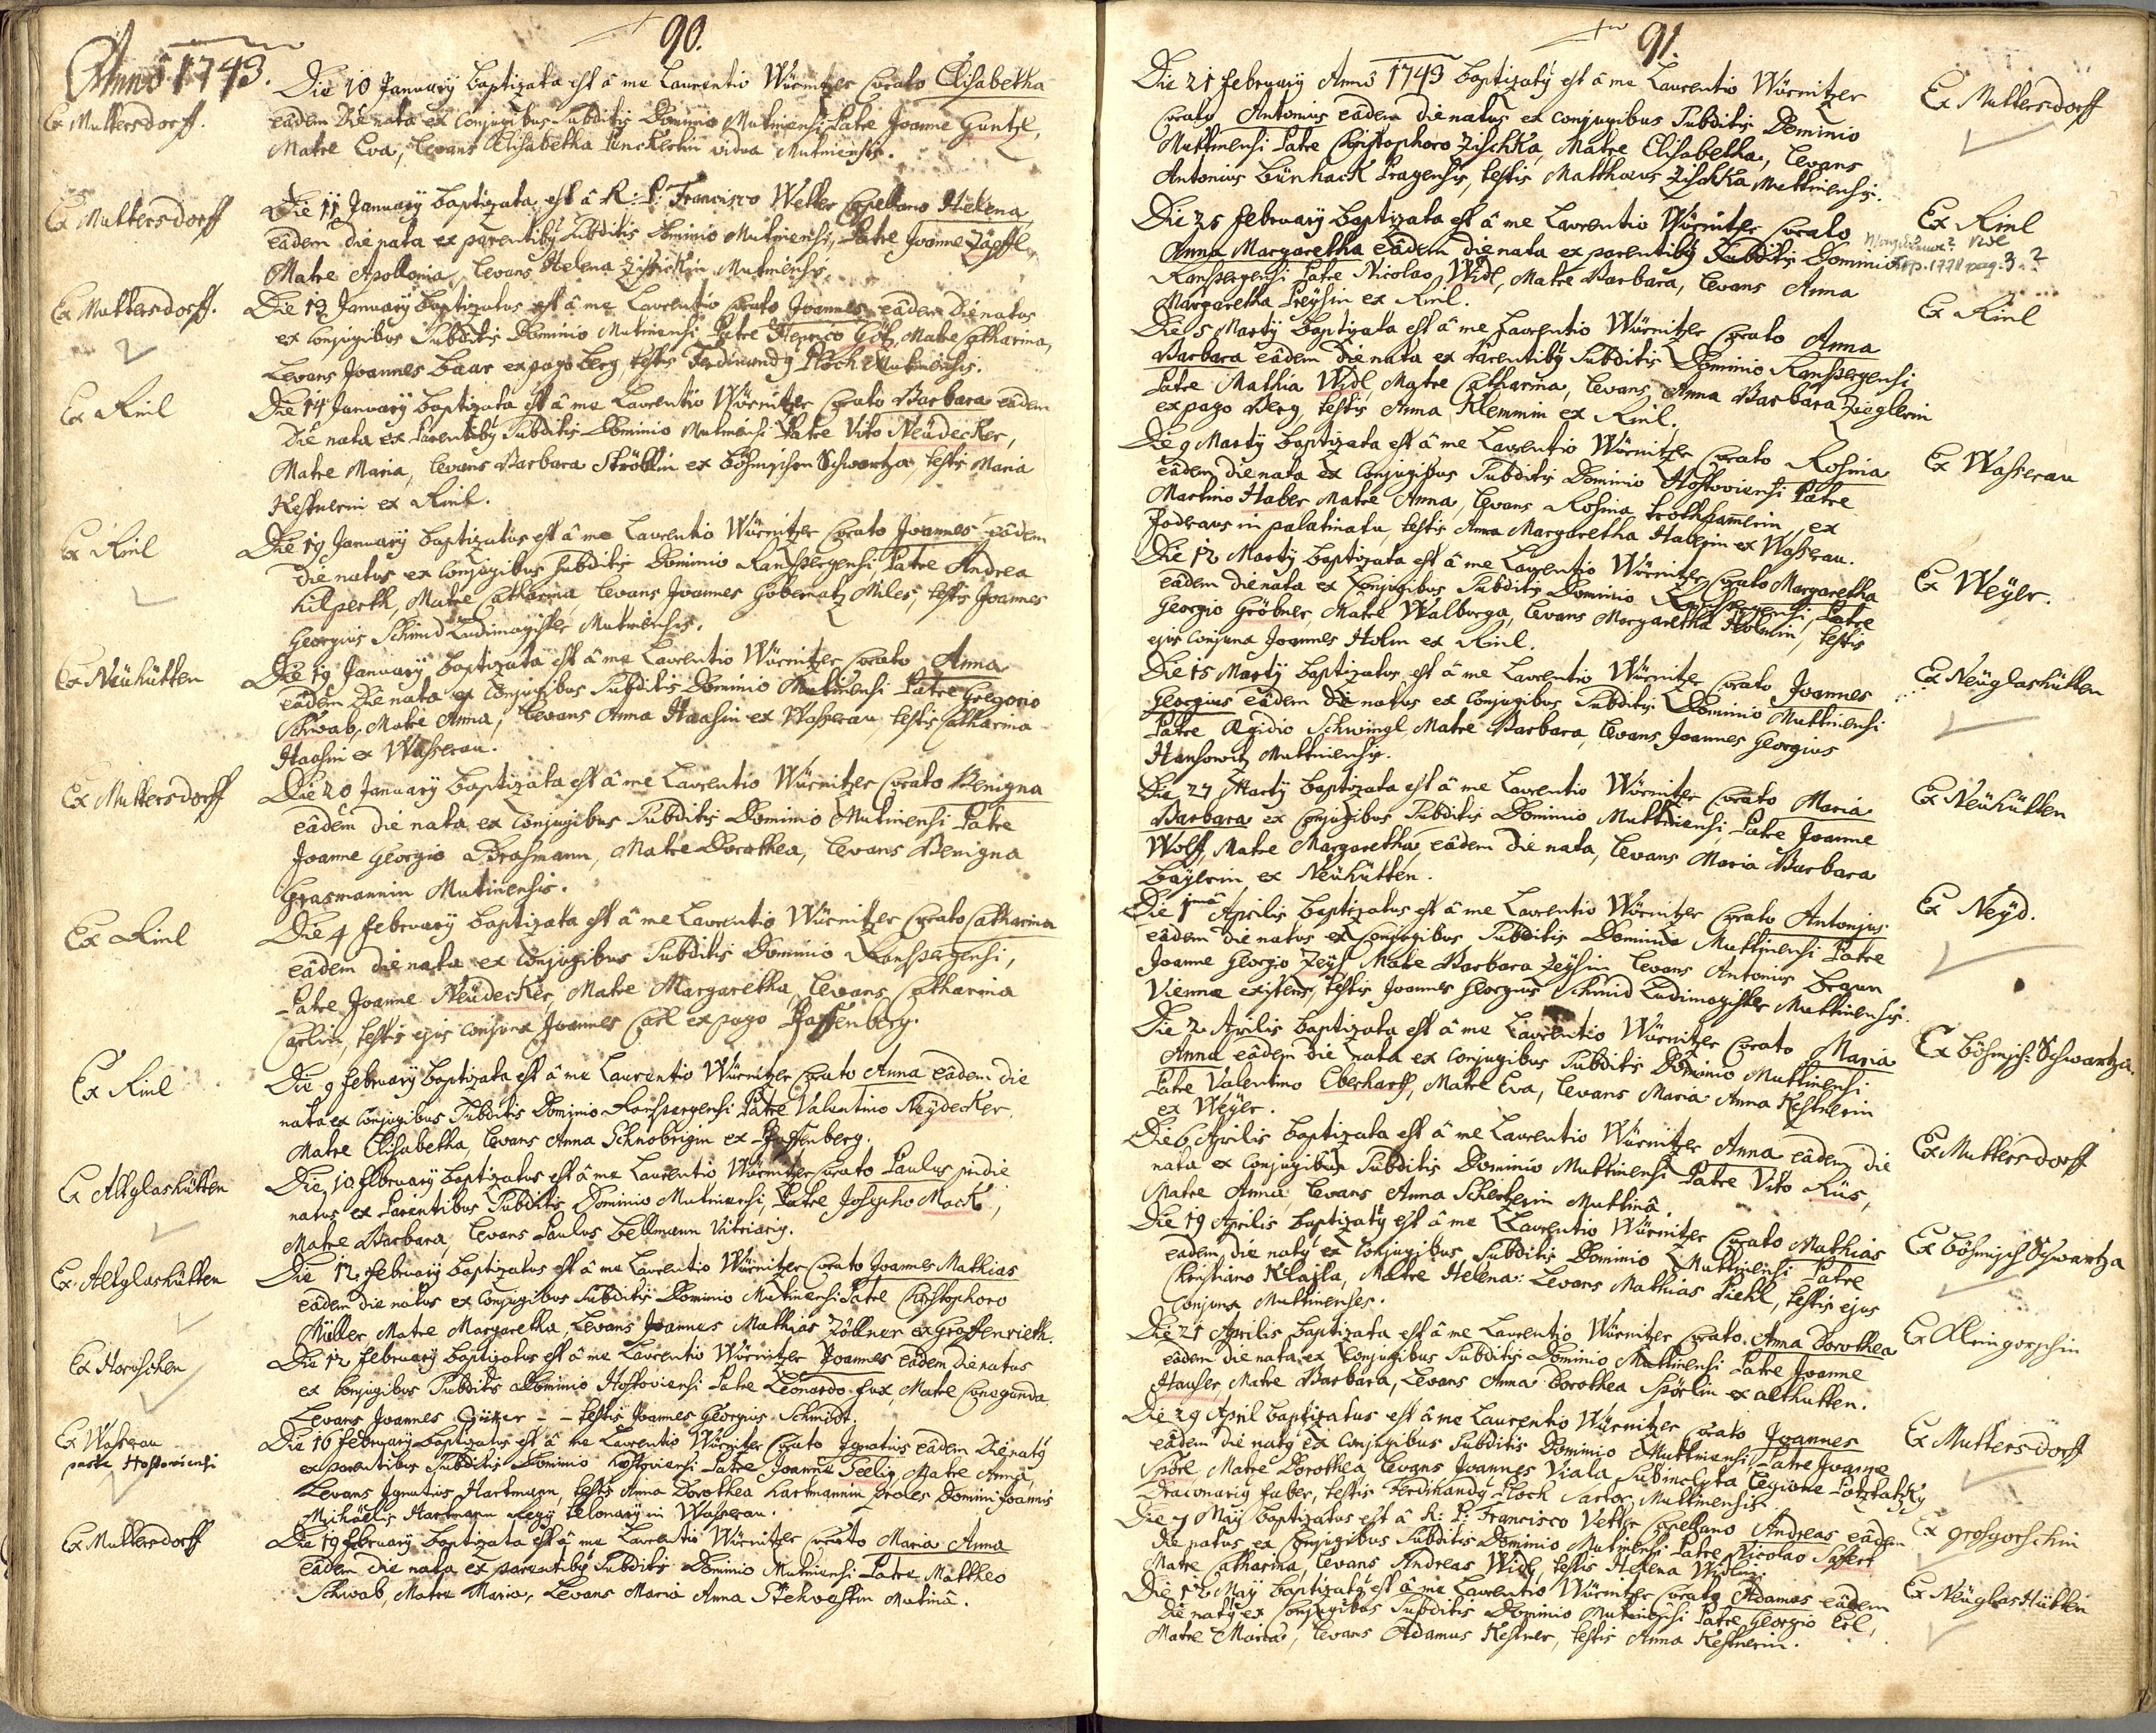 90.
Anno 1743.
Die 10 Januarÿ baptizata est â me Laurentio Würnitzer Curato Elisabetha
Ex Muttersdorff.
eâdem Die nata ex Conjugibus Subditis Dominio Mutinensi Patre Joanne Guntzl,
Matre Eva, levans Elisabetha vidua Mutinensis.
Ex Muttersdorff
Die 11 Januarÿ baptizata est â R: P: Francisco Vetter Capellano Helena
eâdem die nata ex parentibꝰ Subditis Dominio Mutinensi, Patre Joanne
Matre Apollonia, levans Helena Mutinensis.
Ex Muttersdorff.
Die 13 Januarÿ baptizatus est â me Laurentio Curato Joannes eâdem Die natus
ex Conjugibus Subditis Dominio Mutinensi Patre Henrico Götz, Matre Catharina,
Levans Joannes Baar ex pago berg, testis Ferdinandꝰ Ploch Mutinensis.
Ex Rinl
Die 14 Januarÿ baptizata est â me Laurentio Würnitzer Curato Barbara eâdem
Die nata ex Parentibꝰ Subditis Dominio Mutinensi Patre Vito Neüdecker,
Matre Maria, levans Barbara Ströblin ex böhmischen Schwartza, testis Maria
Kestnerin ex Rinl.
Ex Rinl
Die 19 Januarÿ baptizatus est â me Laurentio Würnitzer Curato Joannes eâdem
die natus ex Conjugibus Subditis Dominio Ranspergensi Patre Andrea
Hilperth, Matre Catharina, levans Joannes Gobernatz Miles, testis Joannes
Georgius Schmid Ludimagister Mutinensis.
Ex Neühütten
Die 19 Januarÿ baptizata est â me Laurentio Würnitzer Curato Anna
eâdem Die nata ex Conjugibus Subditis Dominio Mutinensi Patre Gregorio
Schwab, Matre Anna, levans Anna Haasin ex Wasserau, testis Catharina
Haasin ex Wasserau.
Ex Muttersdorff
Die 20 Januarÿ baptizata est â me Laurentio Würnitzer Curato Benigna
eâdem die nata ex Conjugibus Subditis Dominio Mutinensi Patre
Joanne Georgio Grasmann, Matre Dorothea, levans Benigna
Grasmannin Mutinensis.
Ex Rinl
Die 4 februarÿ baptizata est â me Laurentio Würnitzer Curato Catharina
eâdem die nata ex Conjugibus Subditis Dominio Ranspergensi,
Patre Joanne Neüdecker, Matre Margaretha, levans Catharina
Carlin, testis ejus conjunx Joannes Carl ex pago Pfaffenberg.
Ex Rinl
Die 9 februarÿ baptizata est â me Laurentio Würnitzer Curato Anna eâdem die
nata ex Conjugibus Subditis Dominio Ranspergensi Patre Valentino Neÿdecker,
Matre Elisabetha, levans Anna Schnobrigin ex Pfaffenberg.
Ex Altglashütten
Die 10 februarÿ baptizatus est â me Laurentio Würnitzer Curato Paulus
natus ex Parentibus Subditis Dominio Mutinensi, Patre Josepho Mack,
Matre Barbara, levans Paulus Bellmann Vitriarius.
Ex Altglashütten
Die 12 februarÿ baptizatus est â me Laurentio Würnitzer Curato Joannes Mathias
eâdem die natus ex Conjugibus Subditis Dominio Mutinensi Patre Christophoro
Müller, Matre Margaretha, Levans Joannes Mathias Zöllner ex Grafenrieth.
Ex Horoschen
Die 12 februarÿ baptizatus est â me Laurentio Würnitzer Joannes eâdem die natus
ex Conjugibus Subditis Dominio Hostoviensi Patre Leonardo fux, Matre Conegunda,
Levans Joannes - - testis Joannes Georgius Schmidt.
Ex Wasserau
parte Hostoviensi
Die 16 februarÿ baptizatus est â me Laurentio Würnitzer Curato Ignatius eâdem Die natꝰ
ex parentibus Subditis Dominio Hostoviensi Patre Joanne Seelig, Matre Anna,
Levans Ignatius Hartmann, testis Anna Dorothea Hartmannin proles Domini Joannis
Michäelis Hartmann Regÿ telonarÿ in Wasserau.
Ex Muttersdorff
Die 19 februarÿ baptizata est â me Laurentio Würnitzer Curato Maria Anna
eâdem die nata ex parentibꝰ Subditis Dominio Mutinensi Patre Mattheo
Schwab, Matre Maria, Levans Maria Anna Mutinâ.
91.
Die 21 februarÿ Anno 1743 baptizatꝰ est â me Laurentio Würnitzer
Ex Muttersdorff
Curato Antonius eâdem die natus ex conjugibus Subditis Dominio
Muttinensi Patre Christophoro Zischka, Matre Elisabetha, levans
Antonius Bünhack Pragensis, testis Matthæus Zischka Muttinensis.
Ex Rinl
Die 25 februarÿ baptizata est â me Laurentio Würnitzer Curato
Anna Margaretha eâdem die nata ex parentibꝰ Subditis Dominio
vide
1778 pag. 3.?
Ranspergensi Patre Nicolao Widl, Matre Barbara, levans Anna
Margaretha Preÿsin ex Rinl.
Ex Rinl
Die 5 Martÿ baptizata est â me Laurentio Würnitzer Curato Anna
Barbara eâdem die nata ex Parentibꝰ Subditis Dominio Ranspergensi
Patre Mathia Widl, Matre Catharina, levans Anna Barbara Zieglerin
ex pago Berg, testis Anna Klemmin ex Rinl.
Ex Wasserau
Die 9 Martÿ baptizata est â me Laurentio Würnitzer Curato Rosina
eâdem die nata ex Conjugibus Subditis Dominio Hostoviensi Patre
Martino Haber, Matre Anna, levans Rosina ex
in palatinatu, testis Anna Margaretha Haberin ex Wasserau.
Ex Weÿer.
Die 12 Martÿ baptizata est â me Laurentio Würnitzer Curato Margaretha
eâdem die nata ex Conjugibus Subditis Dominio Ranspergensi Patre
Georgio Gröbner, Matre Walburga, levans Margaretha Holmin, testis
ejus Conjunx Joannes Holm ex Rinl.
Ex Neüglashütten
Die 15 Martÿ baptizatus est â me Laurentio Würnitzer Curato Joannes
Georgius eâdem Die natus ex Conjugibus Subditis Dominio Muttinensi
Patre Ægidio Schwingl, Matre Barbara, levans Joannes Georgius
Hansowitz Muttinensis.
Ex Neühütten
Die 27 Martÿ baptizata est â me Laurentio Würnitzer Curato Maria
Barbara ex Conjugibus Subditis Dominio Muttinensi, Patre Joanne
Wolff, Matre Margaretha, eâdem die nata, levans Maria Barbara
Baÿerin ex Neühütten.
Ex Neÿd.
Die 1mâ Aprilis baptizatus est â me Laurentio Würnitzer Curato Antonius
eâdem die natus ex Conjugibus Subditis Dominio Muttinensi Patre
Joanne Georgio Zeÿs, Matre Barbara Zeÿsin levans Antonius Braun
Viennæ existens, testis Joannes Georgius Schmid Ludimagister Muttinensis.
Ex böhmisch: Schwartza.
Die 2 Aprilis baptizata est â me Laurentio Würnitzer Curato Maria
Anna eâdem die nata ex Conjugibus Subditis Dominio Muttinensi
Patre Valentino Eberharth, Matre Eva, levans Maria Anna Kestnerin
ex Weÿer.
Ex Muttersdorff
Die 6 Aprilis baptizata est â me Laurentio Würnitzer Anna eâdem die
nata ex Conjugibus Subditis Dominio Muttinensi Patre Vito Rüs,
Matre Anna, levans Anna Schertzerin Muttinâ.
Ex böhmisch Schwartza
Die 19 Aprilis baptizatꝰ est â me Laurentio Würnitzer Curato Mathias
eâdem die natꝰ ex Conjugibus Subditis Dominio Muttinensi Patre
Christiano Klajla, Matre Helena: Levans Mathias Piehl, testis ejus
Conjunx Muttinenses.
Ex Kleingorschin
Die 21 Aprilis baptizata est â me Laurentio Würnitzer Curato Anna Dorothea
eâdem die nata ex Conjugibus Subditis Dominio Muttinensi Patre Joanne
Hauser, Matre Barbara, Levans Anna Dorothea Spörlin ex althutten.
Ex Muttersdorff
Die 29 April baptizatus est â me Laurentio Würnitzer Curato Joannes
eâdem die natꝰ ex Conjugibus Subditis Dominio Muttinensi, Patre Joanne
Spörl, Matre Dorothea, levans Joannes Viala Sub inclyta Legione
Draconariꝰ faber, testis Ferdinandꝰ Ploch Sartor Muttinensis.
Ex grosgorschin
Die 7 Maÿ baptizatus est â R: P: Francisco Vetter Capellano Andreas eâdem
die natus ex Conjugibus Subditis Dominio Mutinensi Patre Nicolao Saffert
Matre Catharina, levans Andreas Widl, testis Helena Widlin.
Ex Neüglashütten
Die 12 Maÿ baptizatꝰ est â me Laurentio Würnitzer Curato Adamus eâdem
Die natꝰ ex Conjugibus Subditis Dominio Mutinensi Patre Georgio Erl,
Matre Maria, levans Adamus Kestner, testis Anna Kestnerin.